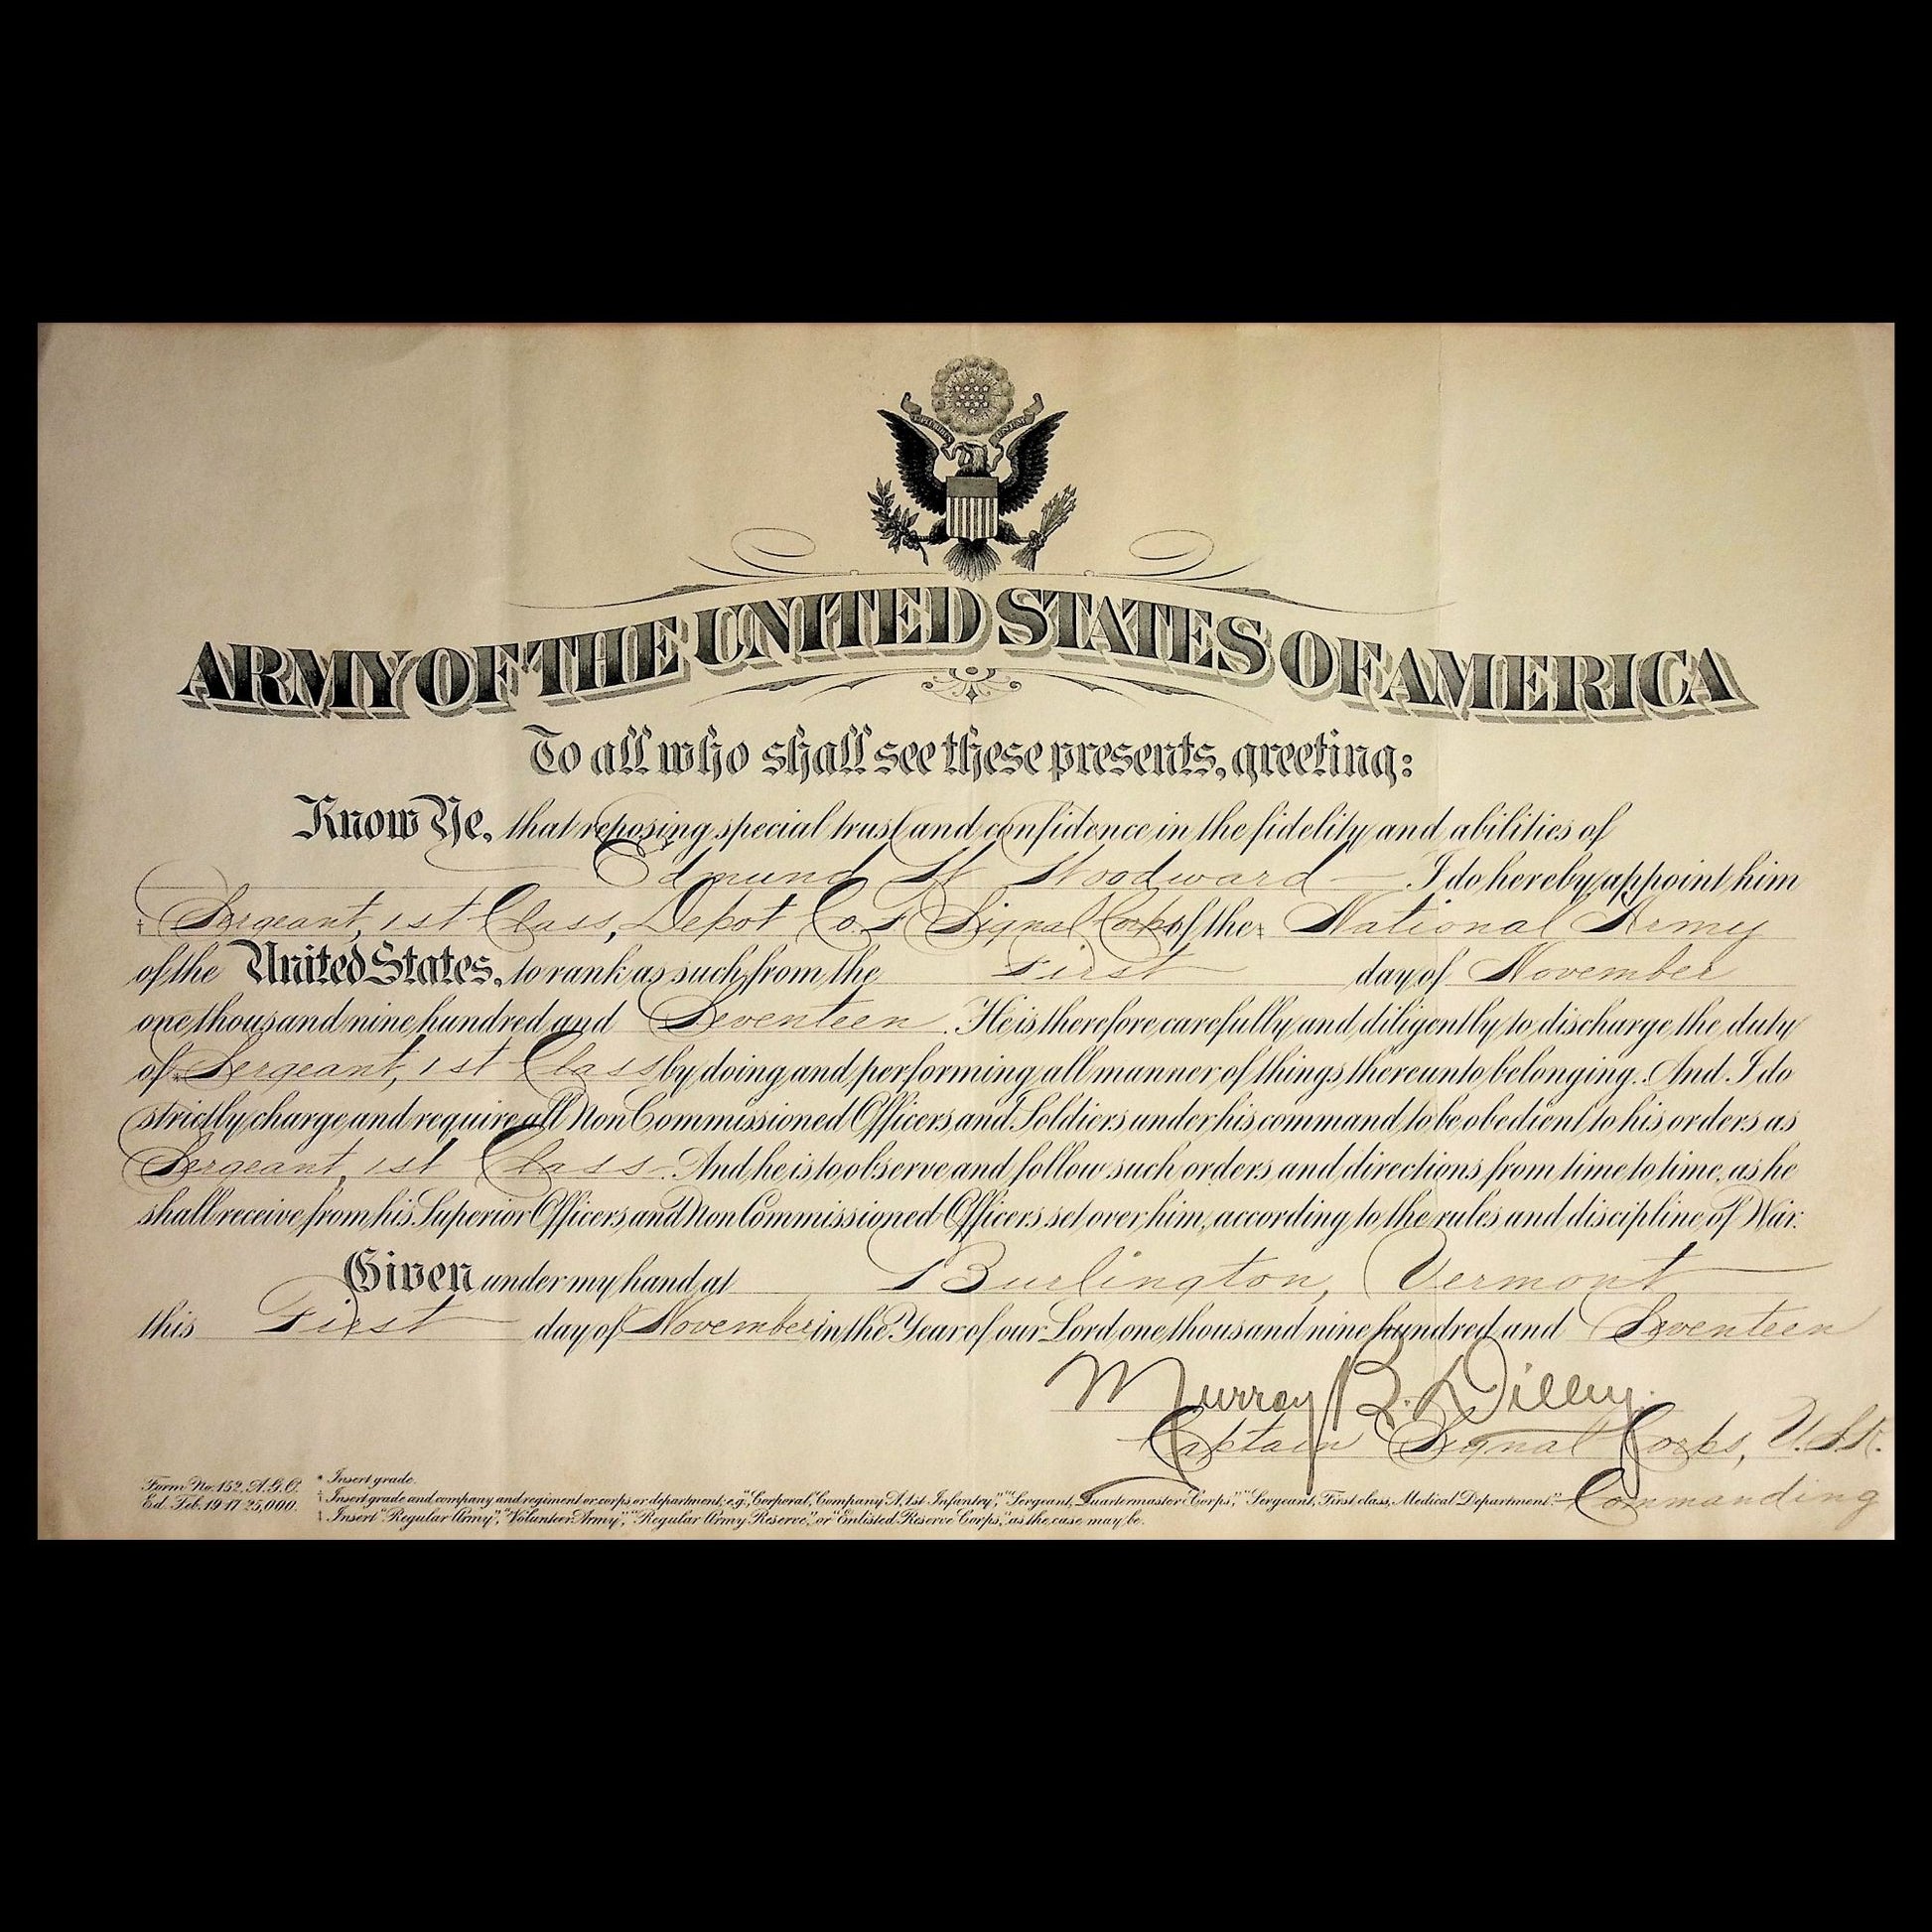 E PLURIBUS UNUM
ARMY OF THE UNITED STATES OF AMERICA
To all who shall see these presents, greeting:
Know Ye, that reposing special trust and confidence in the fidelity and abilities of
Edmund H Woodward I do hereby appoint him
† Sergeant, 1st Class, Depot Co. F Signal Corps of the ‡ National Army
of the United States, to rank as such from the First day of November
one thousand nine hundred and Seventeen. He is therefore carefully and diligently to discharge the duty
of * Sergeant, 1st Class by doing and performing all manner of things thereunto belonging. And I do
strictly charge and require all Non Commissioned Officers and Soldiers under his command to be obedient to his orders as
Sergeant, 1st Class. And he is to observe and follow such orders and directions from time to time, as he
shall receive from his Superior Officers and Non Commissioned Officers set over him, according to the rules and discipline of War.
Given under my hand at Burlington, Vermont
this First day of November in the Year of our Lord one thousand nine hundred and Seventeen
Murray B. Dilley.
Captain Signal Corps, U.S.R.
Commanding
Form No. 152, A.G.O.
Ed. Feb. 19-17-25,000.
* Insert grade.
† Insert grade and company and regiment or corps or department; e.g., "Corporal, Company A, 1st Infantry," "Sergeant, Quartermaster Corps," "Sergeant, First class, Medical Department."
‡ Insert "Regular Army", "Volunteer Army", "Regular Army Reserve," or "Enlisted Reserve Corps," as the case may be.